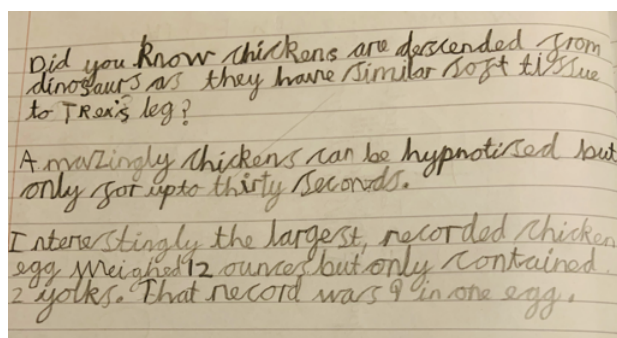 Did you know chickens are descended from
dinosaurs as they have similar soft tissue
to T Rex's leg?
Amazingly chickens can be hypnotised but
only for upto thirty seconds.
Interestingly the largest, recorded chicken
egg weighed 12 ounces but only contained
2 yolks. That record was 9 in one egg.